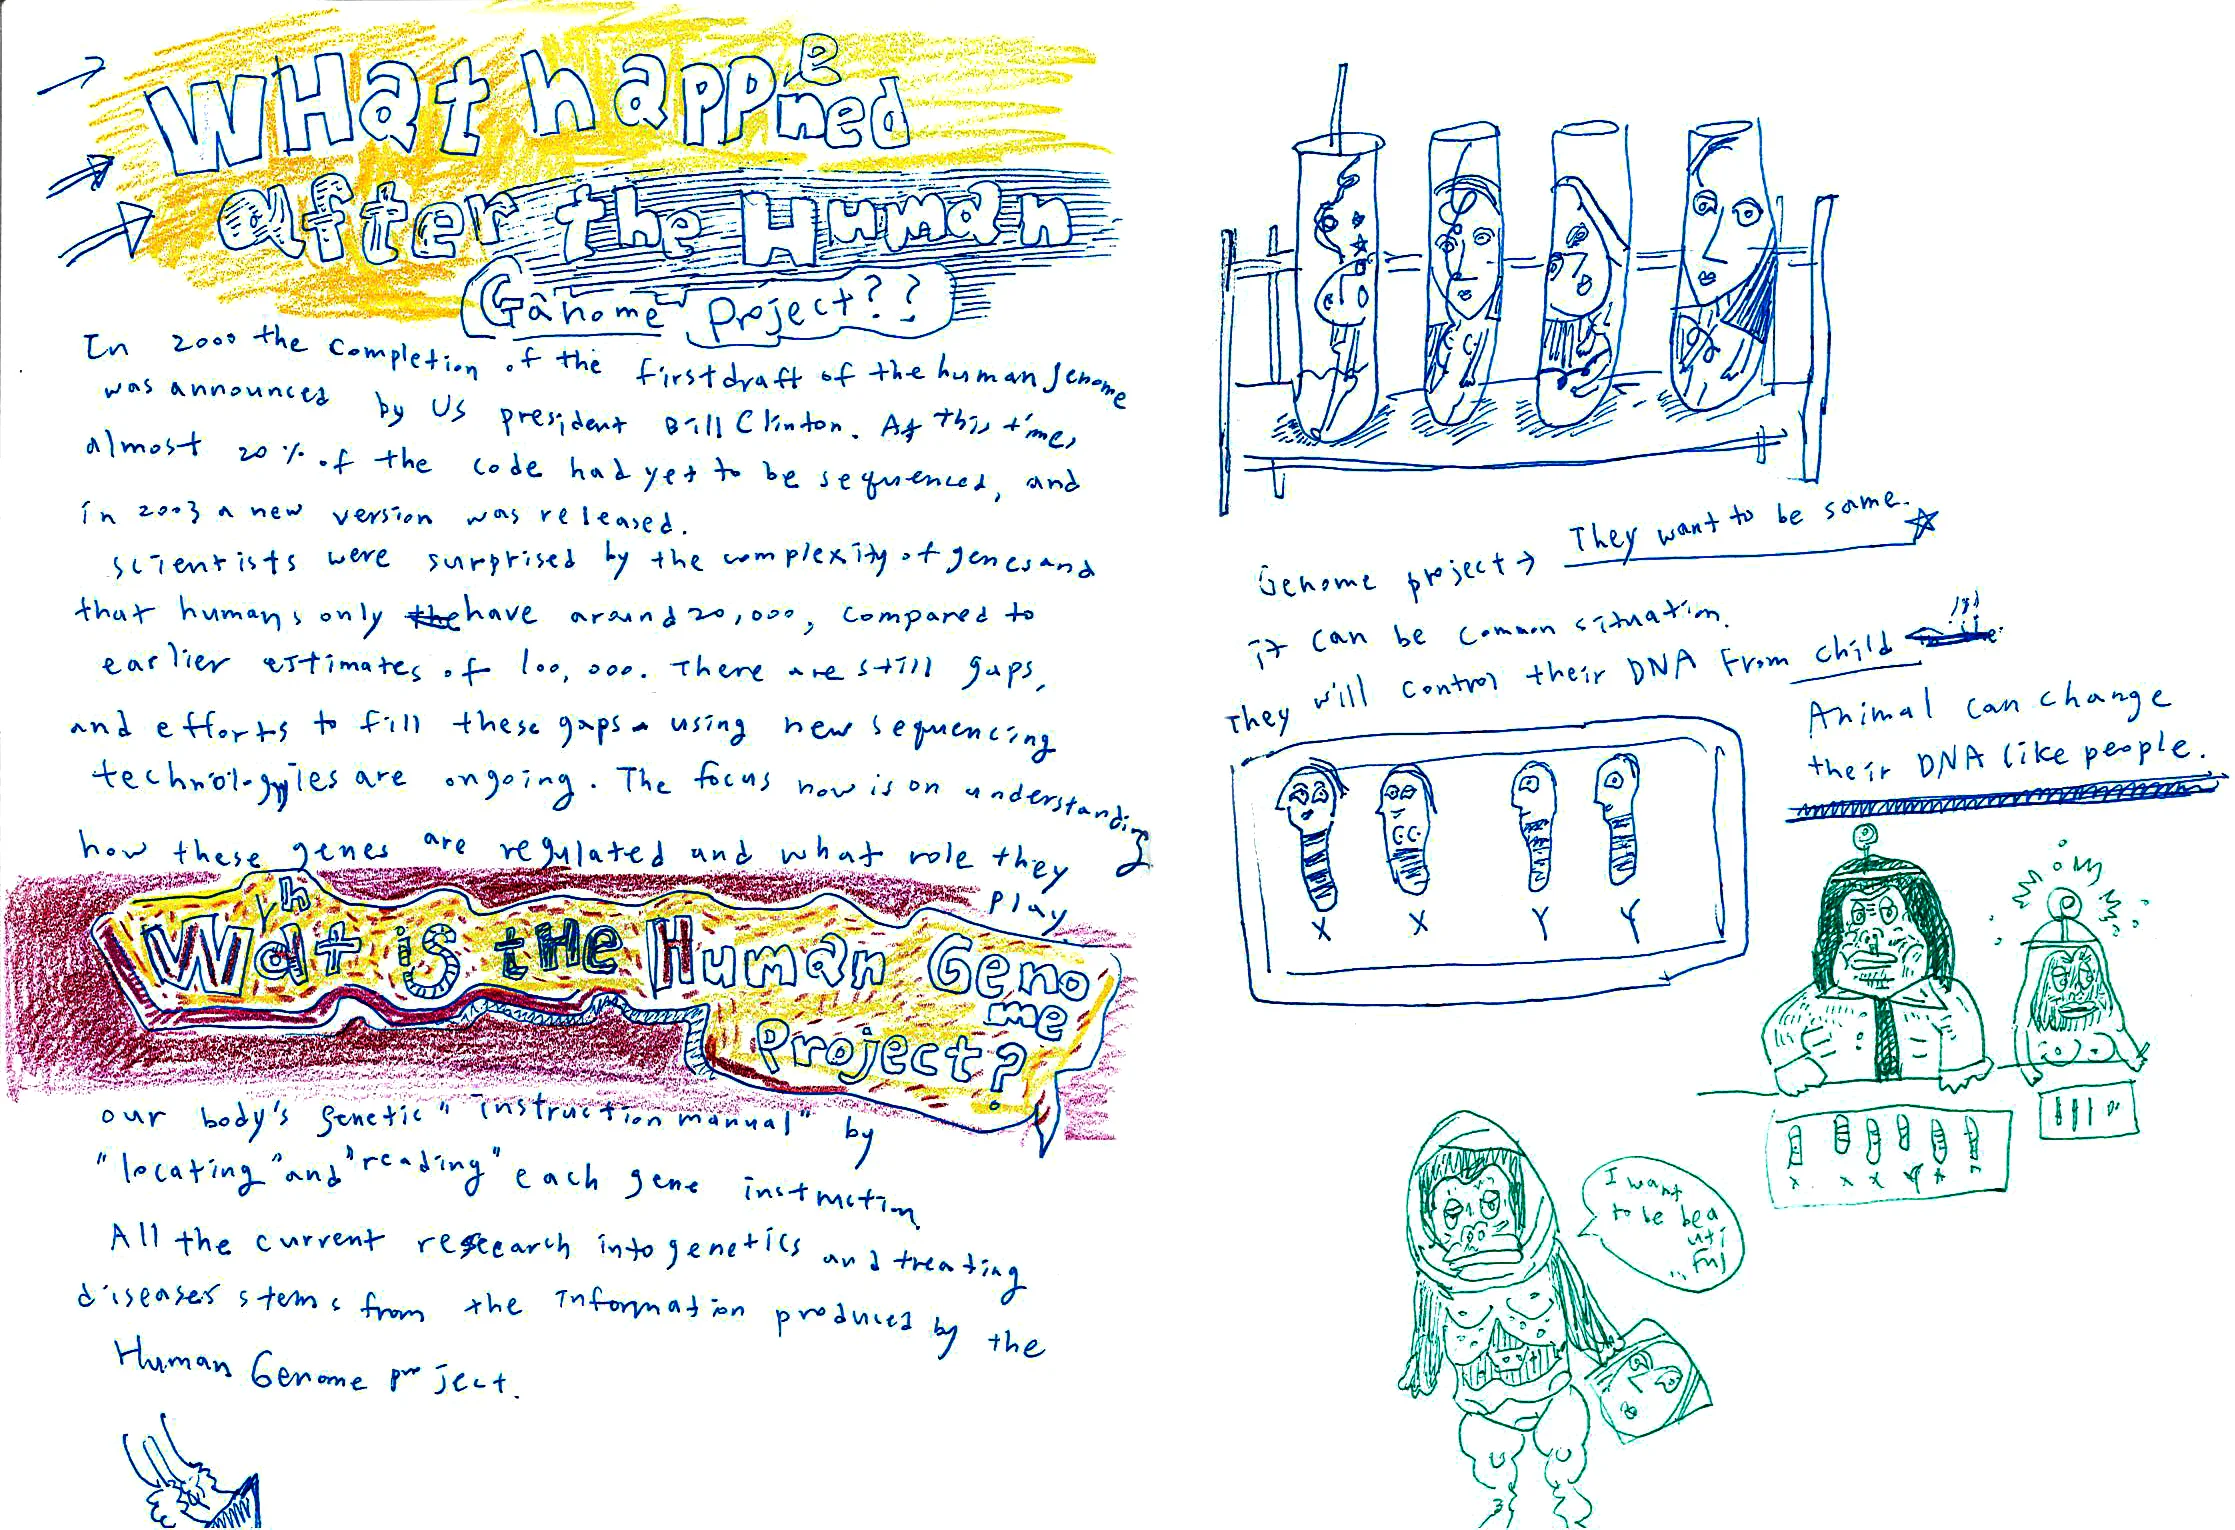 What happened
after the Human
Gahome project??
In 2000 the completion of the first draft of the human genome
was announced by US president Bill Clinton. At this time,
almost 20% of the code had yet to be sequenced, and
in 2003 a new version was released.
scientists were surprised by the complexity of genes and
that humans only have around 20,000, compared to
earlier estimates of 100,000. There are still gaps,
and efforts to fill these gaps using new sequencing
technologies are ongoing. The focus now is on understanding
how these genes are regulated and what role they
play.
What is the Human Geno
me
project?
our body's genetic "instruction manual" by
"locating" and "reading" each gene instruction
All the current research into genetics and treating
diseases stems from the information produced by the
Human Genome project.
Genome project → They want to be same.
it can be common situation.
They will control their DNA From child
X X Y Y
Animal can change
their DNA like people.
I want
to be bea
uti
ful